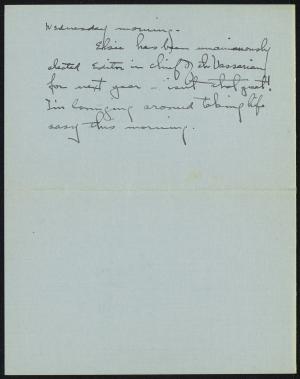 Wednesday morning.
Elsie has been unanimously
elected Editor in chief of the Vassarian
for next year - isn't that great!
I'm lounging around taking life
easy this morning.